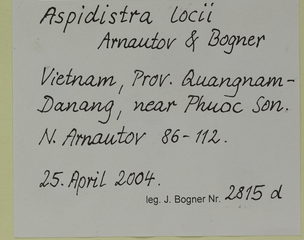 Aspidistra locii
Arnautov & Bogner
Vietnam, Prov. Quangnam-
Danang, near Phuoc Son.
N. Arnautov 86-112.
25. April 2004.
leg. J. Bogner Nr. 2815 d